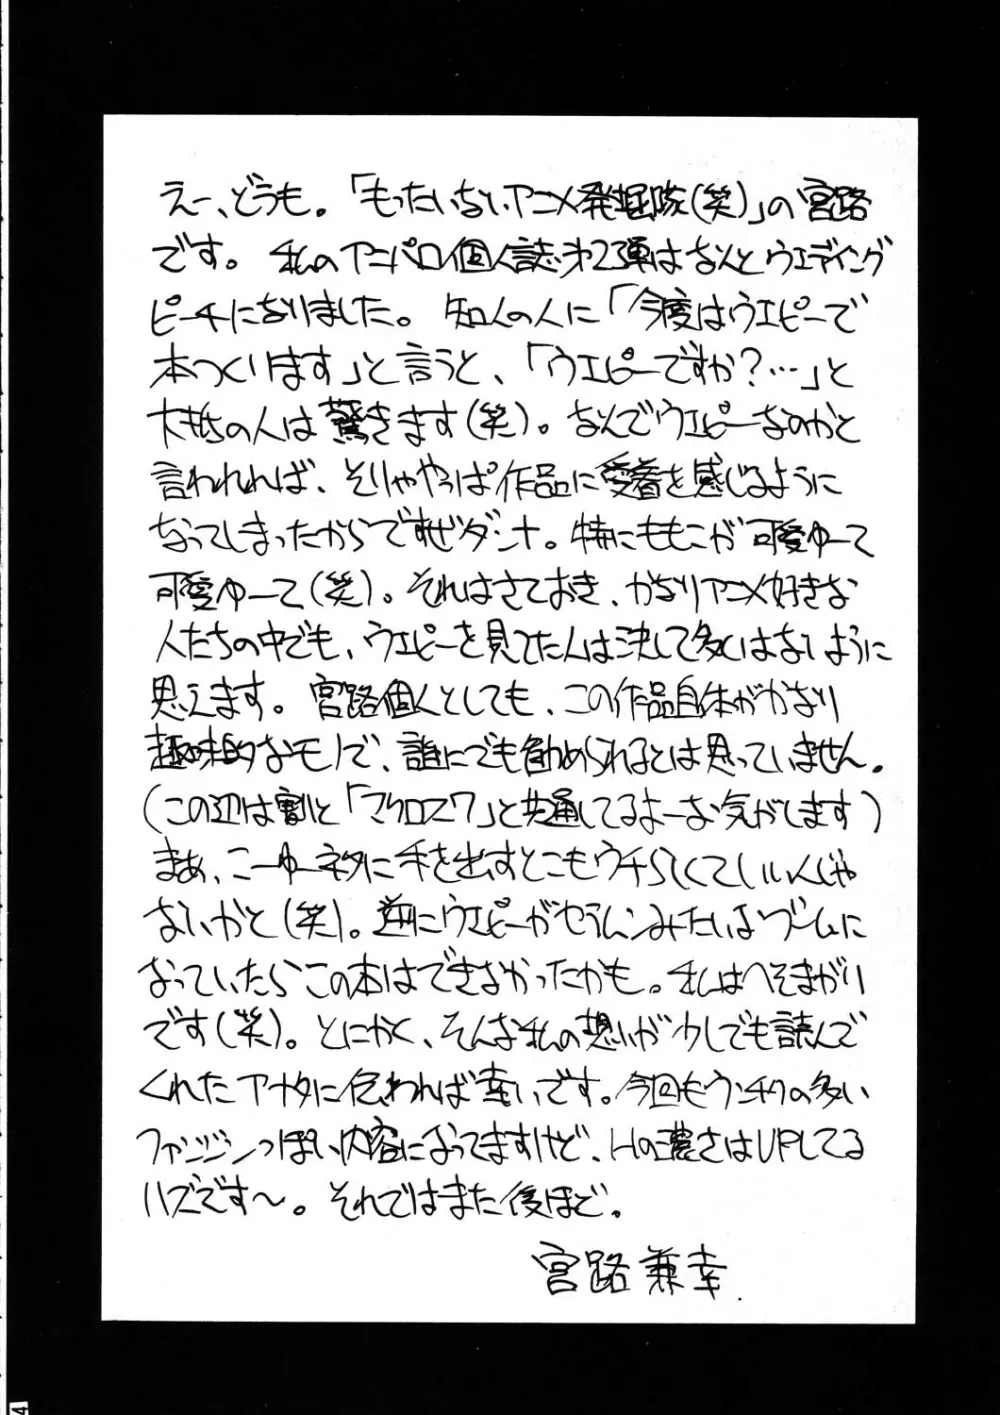 えー、どうも。「もったいないアニメ発掘隊(笑)」の宮路
です。私のアニパロ個人誌第2弾はなんとウエディング
ピーチになりました。知人の人に「今度はウエピーで
本つくります」と言うと、「ウエピーですか?…」と
大抵の人は驚きます(笑)。なんでウエピーなのかと
言われれば、そりゃやっぱ作品に愛着を感じるように
なってしまったからですぜダンナ。特にももこが可愛ゆーて
可愛ゆーて(笑)。それはさておき、かなりアニメ好きな
人たちの中でも、ウエピーを見てた人は決して多くはないように
思えます。宮路個人としても、この作品自体がかなり
趣味的なモノで、誰にでも勧められるとは思っていません。
(この辺は割と「マクロス7」と共通してるよーな気がします)
まぁ、こーゆーネタに手を出すとこもウチらしくていいんじゃ
ないかと(笑)。逆にウエピーがセーラームーンみたいなブームに
なっていたらこの本はできなかったかも。私はへそまがり
です(笑)。とにかく、そんな私の想いが少しでも読んで
くれたアナタに伝われば幸いです。今回もウンチクの多い
ファンジンっぽい内容になってますけど、Hの濃さはUPしてる
ハズです〜。それではまた後ほど。
宮路兼幸
4